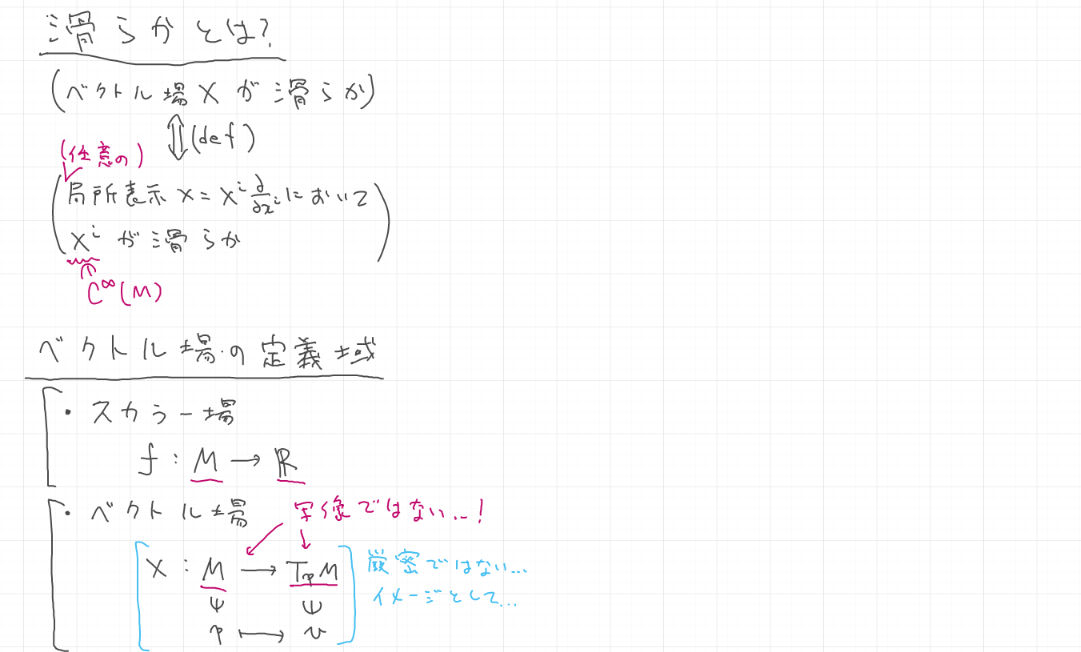 滑らかとは?
(ベクトル場 X が滑らか)
⇕(def)
(任意の)
局所表示 X = X^i ∂/∂x^i において
X^i が滑らか
C^∞(M)
ベクトル場の定義域
・スカラー場
f : M → R
・ベクトル場
写像ではない...!
X : M → TpM
厳密ではない...
イメージとして...
p ↦ v